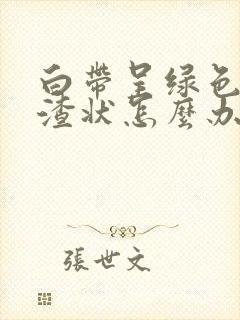 白帶呈绿色
渣状怎麼办
張世文